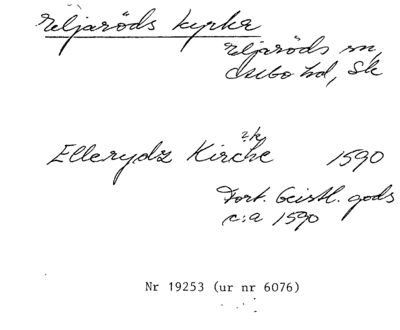 Eljaröds kyrka
Eljaröds sn,
Albo hd, Sk
z.k
Ellerydz Kirche 1590
Fort. Geistl. gods
c:a 1590
Nr 19253 (ur nr 6076)